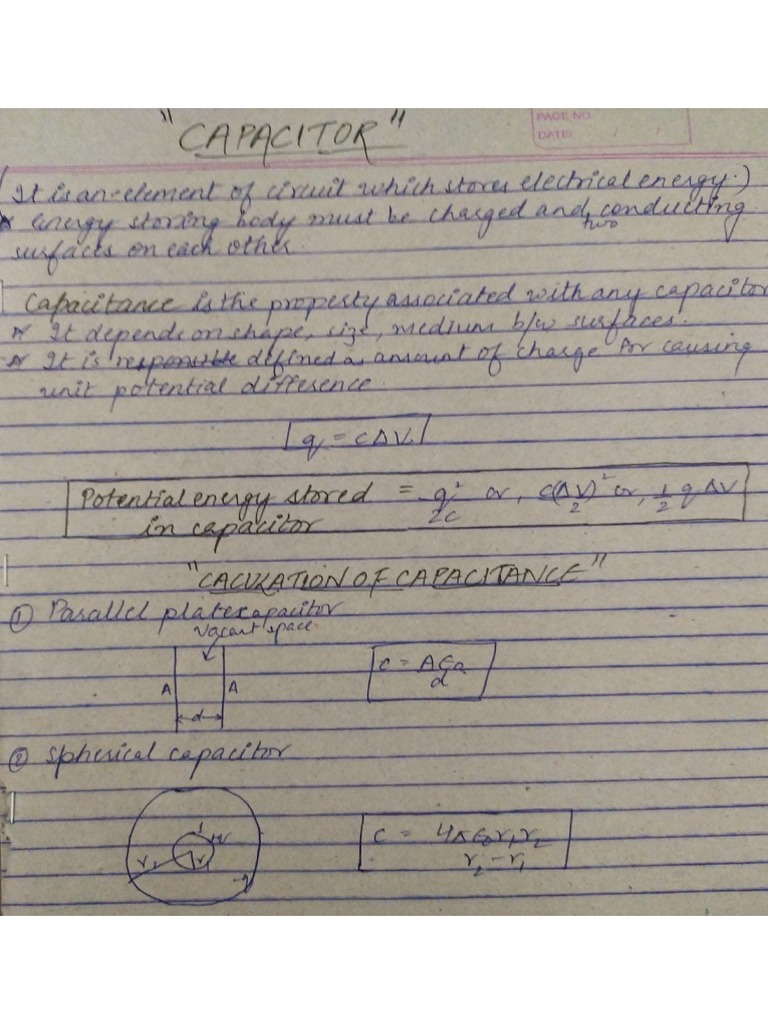 "CAPACITOR"
PAGE NO
DATE: / /
(It is an element of circuit which stores electrical energy.)
* energy storing body must be charged and two conducting
surfaces on each other.
Capacitance is the property associated with any capacitor
* It depends on shape, size, medium b/w surfaces.
* It is defined as amount of charge for causing
unit potential difference.
q = CΔV
Potential energy stored = q²/2c or, C(ΔV)²/2 or, 1/2 qΔV
in capacitor
"CACULATION OF CAPACITANCE"
① Parallel plate capacitor
vacant space
A A
c = Aε₀/d
d
② Spherical capacitor
c = 4πε₀r₁r₂/r₂-r₁
r₂ r₁